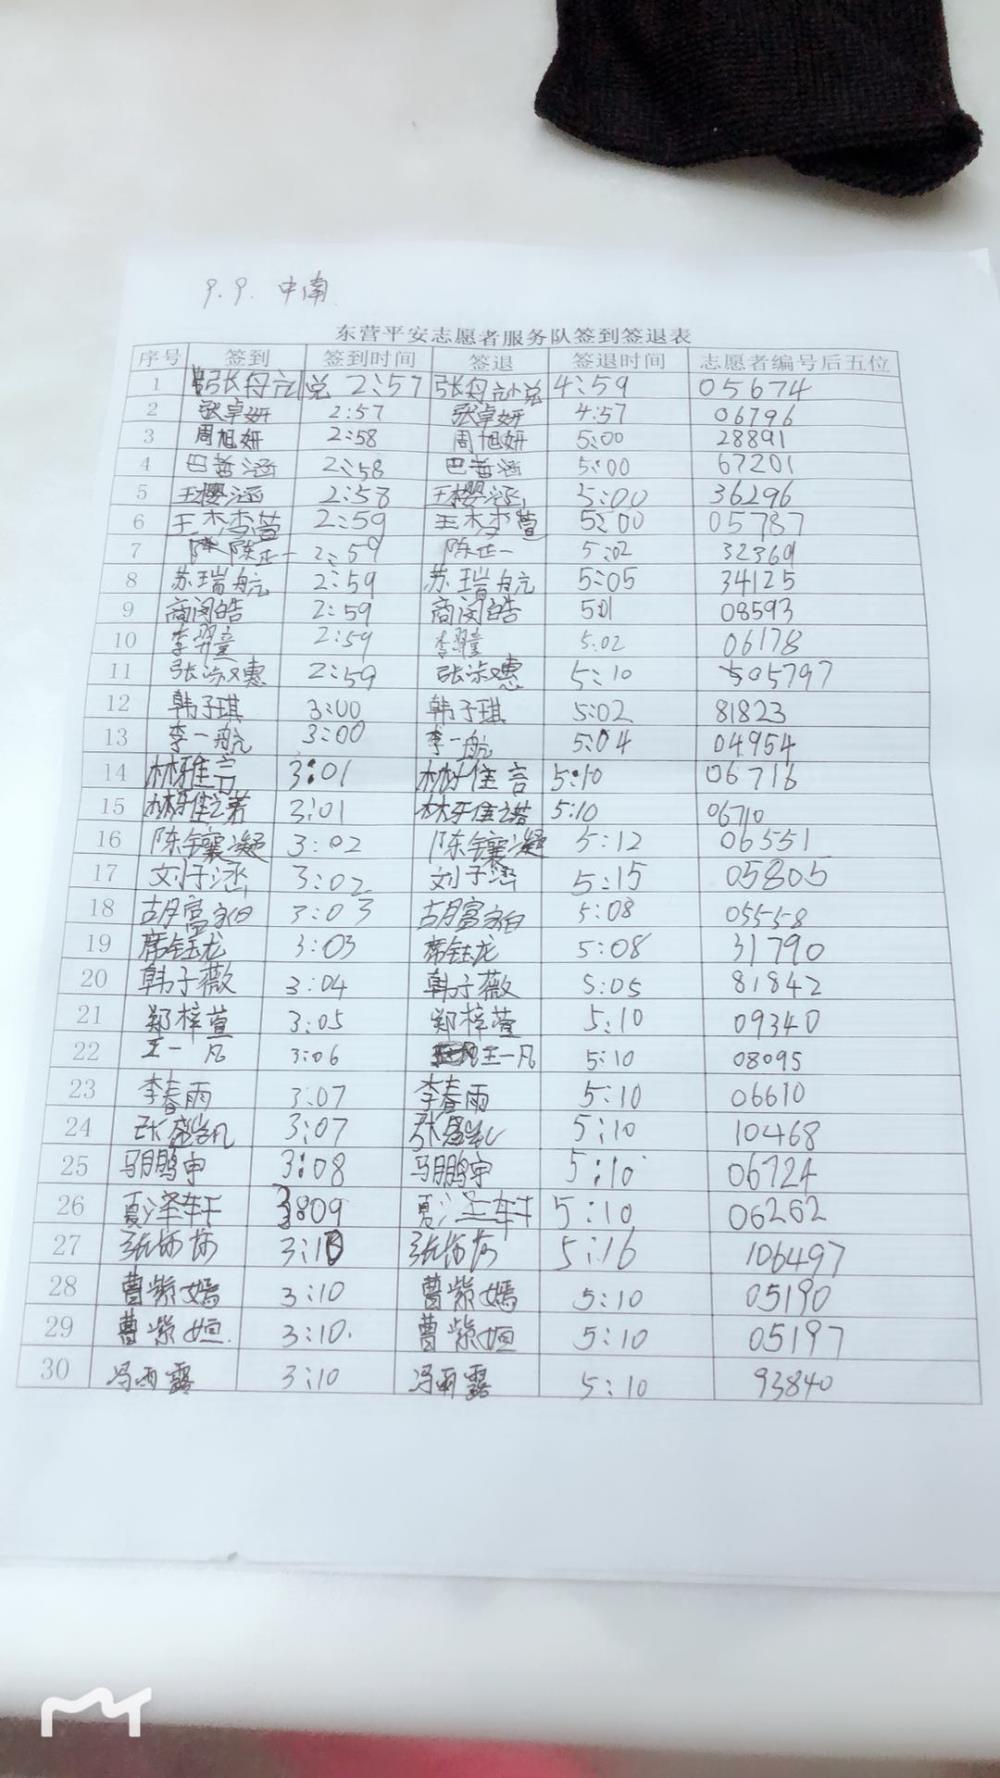 9.9. 中南
东营平安志愿者服务队签到签退表
序号 签到 签到时间 签退 签退时间 志愿者编号后五位
1 2:57 4:59 05674
2 张卓妍 2:57 张卓妍 4:57 06796
3 周旭妍 2:58 周旭妍 5:00 28891
4 巴菩涵 2:58 巴菩涵 5:00 67201
5 王樱涵 2:58 王樱涵 5:00 36296
6 2:59 5:00 05787
7 陈正一 2:59 陈正一 5:02 32369
8 苏瑞航 2:59 苏瑞航 5:05 34125
9 商闵皓 2:59 商闵皓 5:01 08593
10 2:59 5:02 06178
11 2:59 5:10 05797
12 韩子琪 3:00 韩子琪 5:02 81823
13 李一航 3:00 李一航 5:04 04954
14 林雅言 3:01 林雅言 5:10 06716
15 3:01 5:10 06710
16 陈镶凝 3:02 陈镶凝 5:12 06551
17 刘子涵 3:02 刘子涵 5:15 05805
18 胡富柏 3:03 胡富柏 5:08 05558
19 席钰龙 3:03 席钰龙 5:08 31790
20 韩子薇 3:04 韩子薇 5:05 81842
21 郑梓萱 3:05 郑梓萱 5:10 09340
22 王一凡 3:06 王一凡 5:10 08095
23 李春雨 3:07 李春雨 5:10 06610
24 3:07 5:10 10468
25 3:08 5:10 06724
26 夏泽轩 3:09 夏泽轩 5:10 06262
27 3:10 5:16 106497
28 曹紫嫣 3:10 曹紫嫣 5:10 05190
29 曹紫姮 3:10. 曹紫姮 5:10 05197
30 冯雨露 3:10 冯雨露 5:10 93840